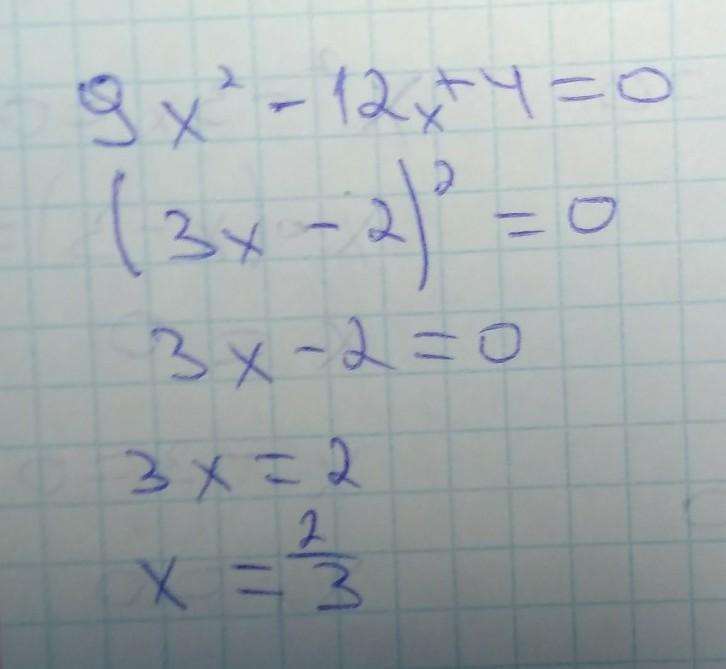 9x² - 12x + 4 = 0
(3x - 2)² = 0
3x - 2 = 0
3x = 2
x = 2/3